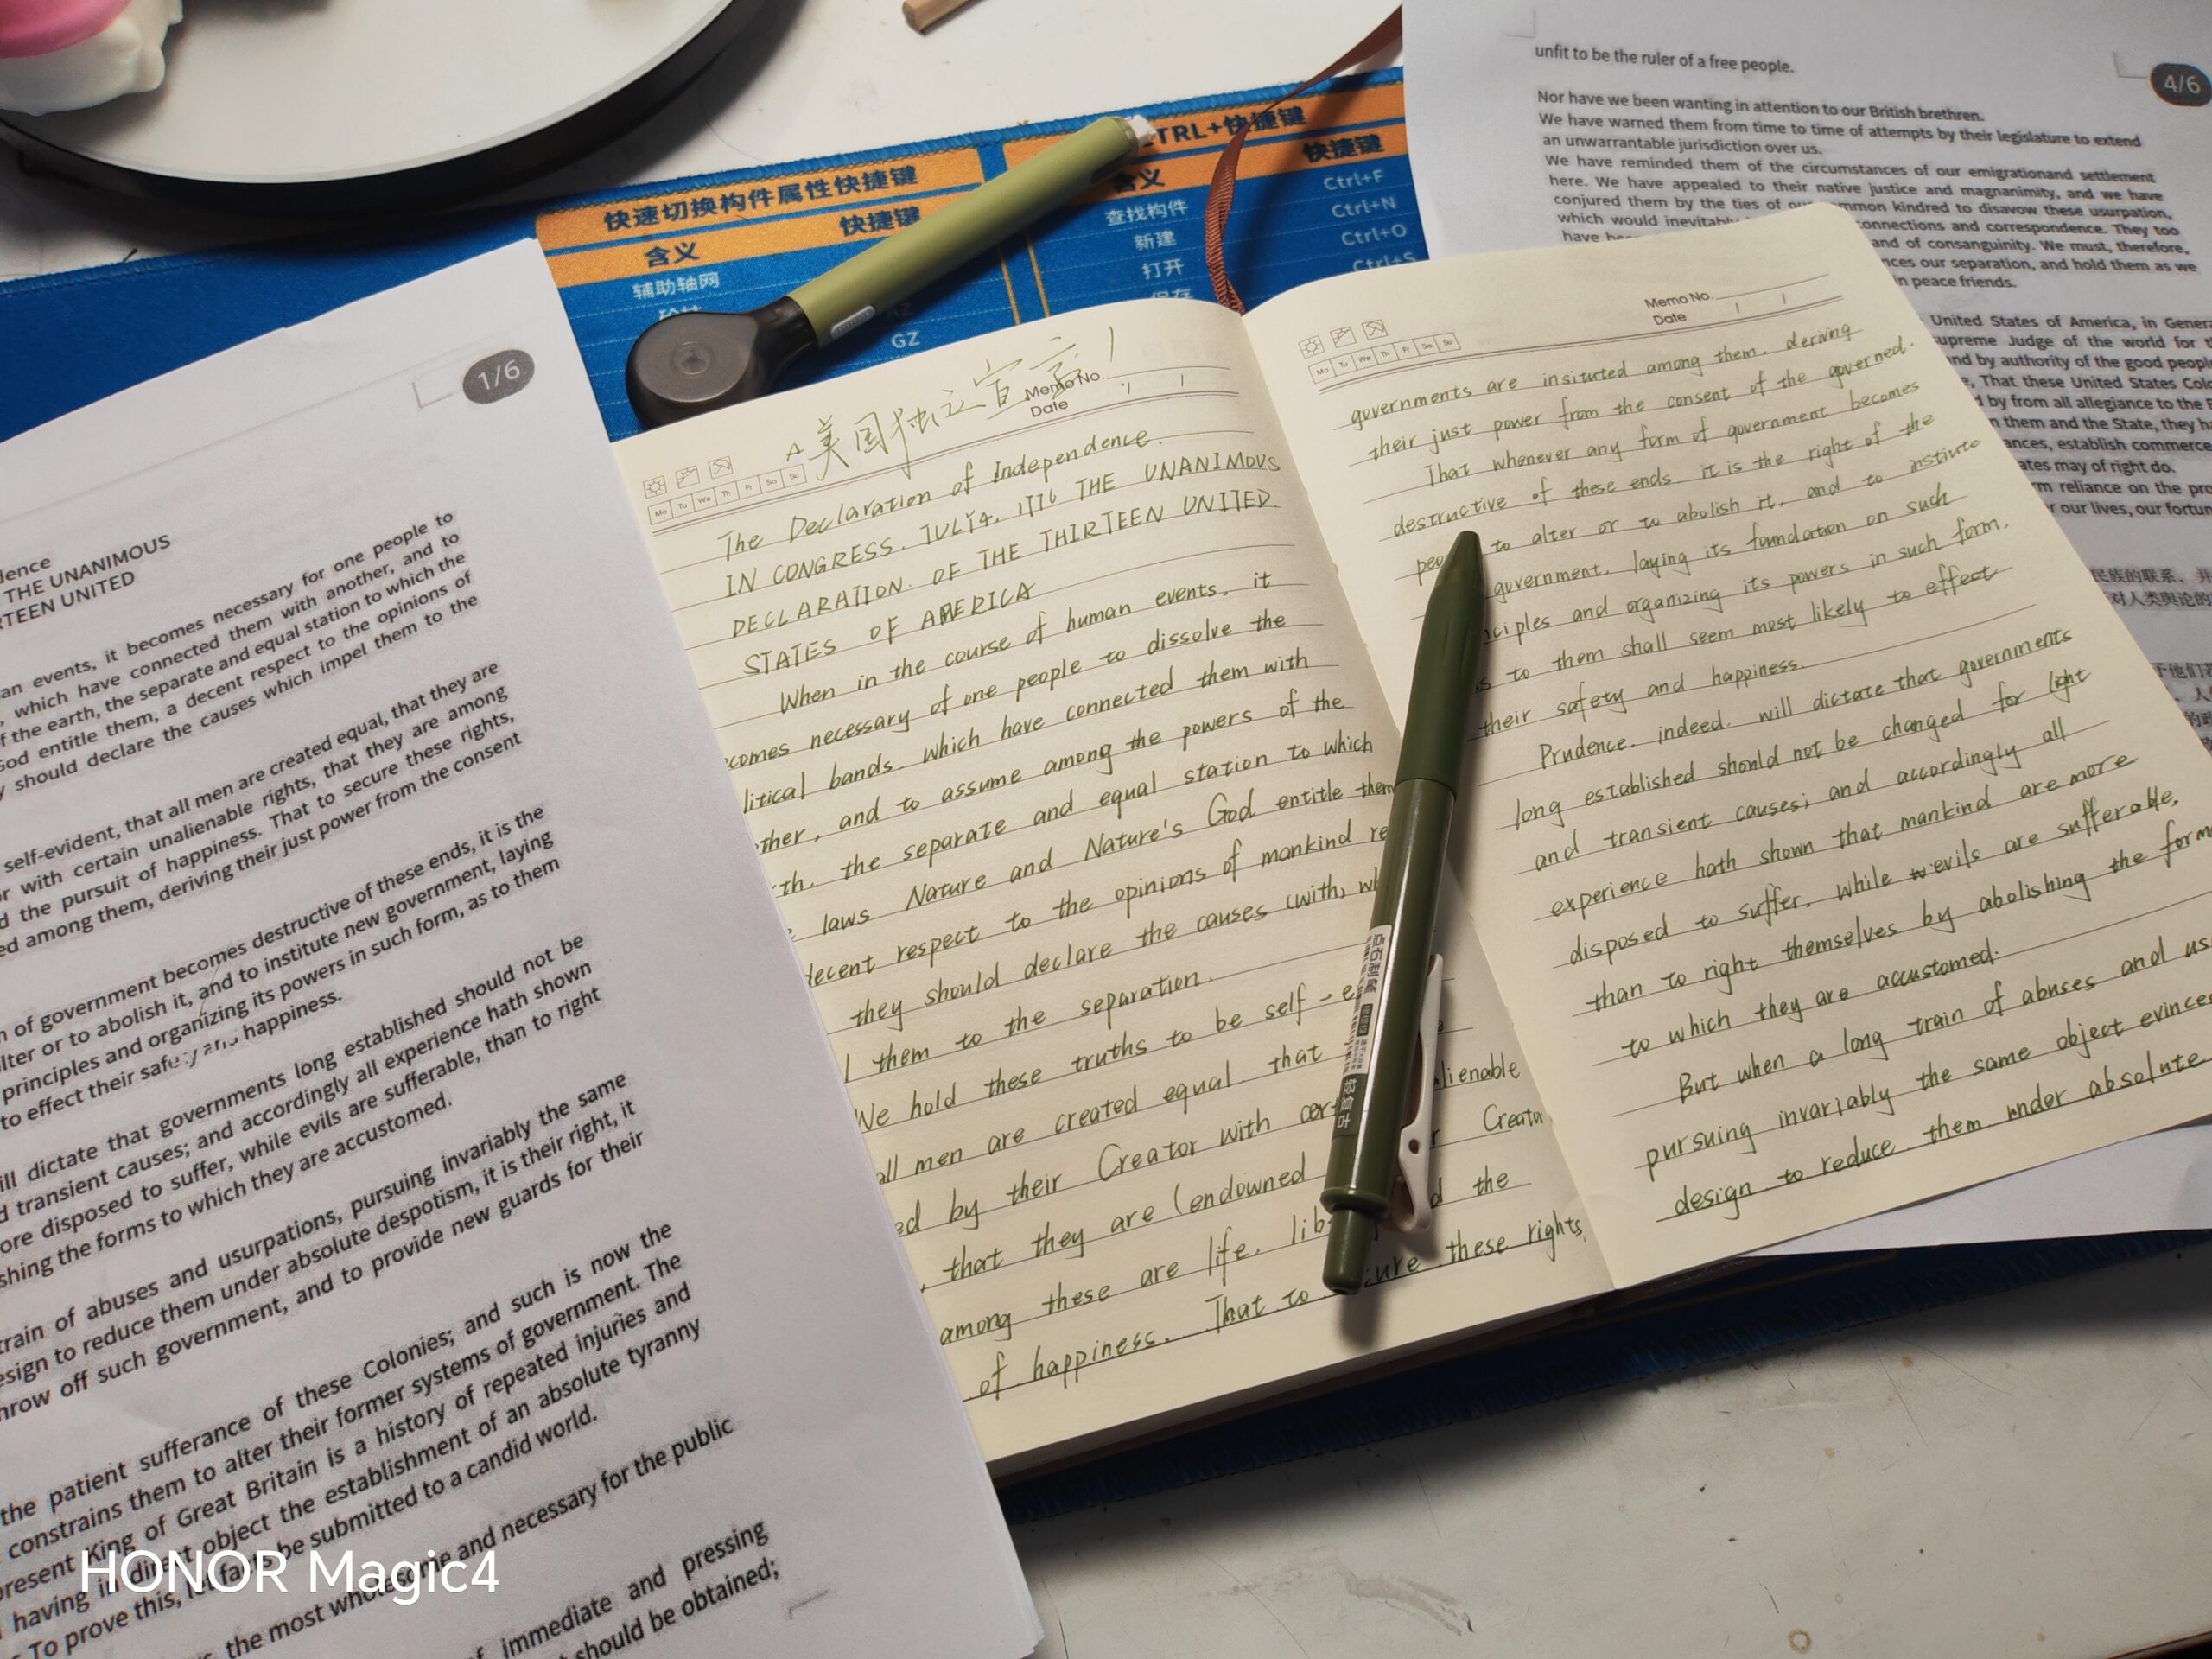 1/6
dence
THE UNANIMOUS
RTEEN UNITED
an events, it becomes necessary for one people to
, which have connected them with another, and to
f the earth, the separate and equal station to which the
God entitle them, a decent respect to the opinions of
y should declare the causes which impel them to the
self-evident, that all men are created equal, that they are
or with certain unalienable rights, that they are among
d the pursuit of happiness. That to secure these rights,
ed among them, deriving their just power from the consent
n of government becomes destructive of these ends, it is the
lter or to abolish it, and to institute new government, laying
principles and organizing its powers in such form, as to them
to effect their safety and happiness.
ill dictate that governments long established should not be
d transient causes; and accordingly all experience hath shown
ore disposed to suffer, while evils are sufferable, than to right
shing the forms to which they are accustomed.
train of abuses and usurpations, pursuing invariably the same
esign to reduce them under absolute despotism, it is their right, it
hrow off such government, and to provide new guards for their
the patient sufferance of these Colonies; and such is now the
constrains them to alter their former systems of government. The
present King of Great Britain is a history of repeated injuries and
having in direct object the establishment of an absolute tyranny
To prove this, let facts be submitted to a candid world.
the most wholesome and necessary for the public
of immediate and pressing
should be obtained;
HONOR Magic4
快速切换构件属性快捷键
含义 快捷键
辅助轴网
GZ
CTRL+快捷键
含义 快捷键
查找构件 Ctrl+F
新建 Ctrl+N
打开 Ctrl+O
保存 Ctrl+S
美国独立宣言!
Memo No.
Date
Mo Tu We Th Fr Sa Su
The Declaration of Independence.
IN CONGRESS. JULY4. 1776 THE UNANIMOUS
DECLARATION. OF THE THIRTEEN UNITED
STATES OF AMERICA
When in the course of human events, it
ecomes necessary of one people to dissolve the
litical bands. which have connected them with
other, and to assume among the powers of the
rth. the separate and equal station to which
laws Nature and Nature's God entitle them
decent respect to the opinions of mankind re
they should declare the causes (with, wh
l them to the separation.
We hold these truths to be self-e
all men are created equal. that
ed by their Creator with cer alienable
, that they are (endowned r Creator
among these are life. lib d the
of happiness. That to cure these rights,
Memo No.
Date
Mo Tu We Th Fr Sa Su
governments are insituted among them. deriving
their just power from the consent of the governed.
That whenever any form of government becomes
destructive of these ends it is the right of the
peo to alter or to abolish it, and to institute
government. laying its foundation on such
nciples and organizing its powers in such form.
as to them shall seem most likely to effect
their safety and happiness.
Prudence. indeed. will dictate that governments
long established should not be changed for light
and transient causes; and accordingly all
experience hath shown that mankind are more
disposed to suffer. while evils are sufferable,
than to right themselves by abolishing the form
to which they are accustomed.
But when a long train of abuses and us
pursuing invariably the same object evinces
design to reduce them under absolute
点石制笔
轻复古
unfit to be the ruler of a free people.
4/6
Nor have we been wanting in attention to our British brethren.
We have warned them from time to time of attempts by their legislature to extend
an unwarrantable jurisdiction over us.
We have reminded them of the circumstances of our emigrationand settlement
here. We have appealed to their native justice and magnanimity, and we have
conjured them by the ties of our common kindred to disavow these usurpation,
which would inevitably connections and correspondence. They too
have be and of consanguinity. We must, therefore,
nces our separation, and hold them as we
n peace friends.
United States of America, in Genera
upreme Judge of the world for t
nd by authority of the good people
e, That these United States Colo
d by from all allegiance to the B
n them and the State, they ha
ances, establish commerce
ates may of right do.
m reliance on the pro
r our lives, our fortun
民族的联系,并
对人类舆论的